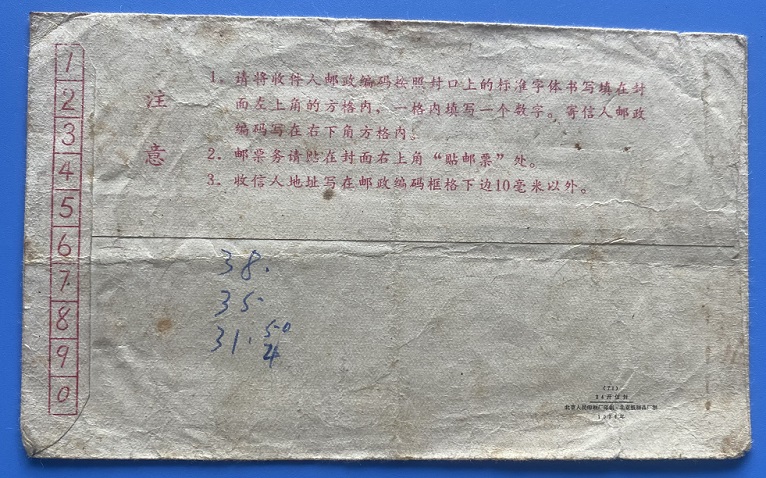 1
2
3
4
5
6
7
8
9
0
注意
1．请将收件人邮政编码按照封口上的标准字体书写填在封
面左上角的方格内，一格内填写一个数字。寄信人邮政
编码写在右下角方格内。
2．邮票务请贴在封面右上角“贴邮票”处。
3．收信人地址写在邮政编码框格下边10毫米以外。
38.
35
31.50
4